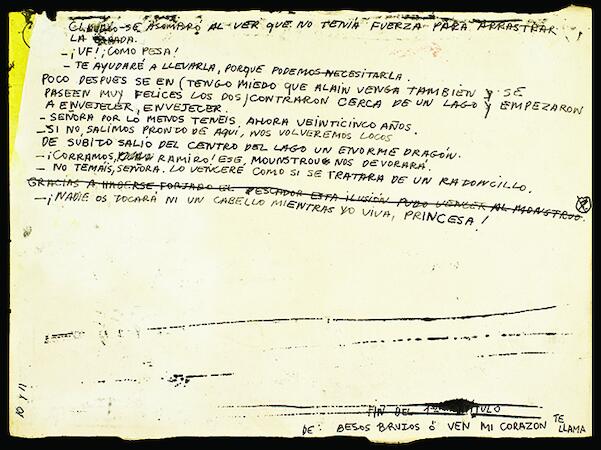 CLAUDIO SE ASOMBRÓ AL VER QUE NO TENÍA FUERZA PARA ARRASTRAR
LA ESPADA.
- ¡UF! ¡COMO PESA!
- TE AYUDARÉ A LLEVARLA, PORQUE PODEMOS NECESITARLA.
POCO DESPUES SE EN (TENGO MIEDO QUE ALAIN VENGA TAMBIÉN Y SE
PASEEN MUY FELICES LOS DOS) CONTRARON CERCA DE UN LAGO Y EMPEZARON
A ENVEJECER, ENVEJECER.
- SEÑORA POR LO MENOS TENÉIS, AHORA VEINTICINCO AÑOS.
- SI NO, SALIMOS PRONTO DE AQUÍ, NOS VOLVEREMOS LOCOS
DE SÚBITO SALIO DEL CENTRO DEL LAGO UN ENORME DRAGÓN.
- ¡CORRAMOS, RAMIRO! ESE, MOUNSTROU NOS DEVORARÁ.
- NO TEMÁIS, SEÑORA. LO VENCERÉ COMO SI SE TRATARA DE UN RATONCILLO.
GRACIAS A HABERSE FORJADO EL PESCADOR ESTA ILUSIÓN PUDO VENCER AL MONSTRUO.
- ¡NADIE OS TOCARÁ NI UN CABELLO MIENTRAS YO VIVA, PRINCESA!
FIN DEL 1º CAPÍTULO
DE: BESOS BRUJOS Ó VEN MI CORAZON TE LLAMA